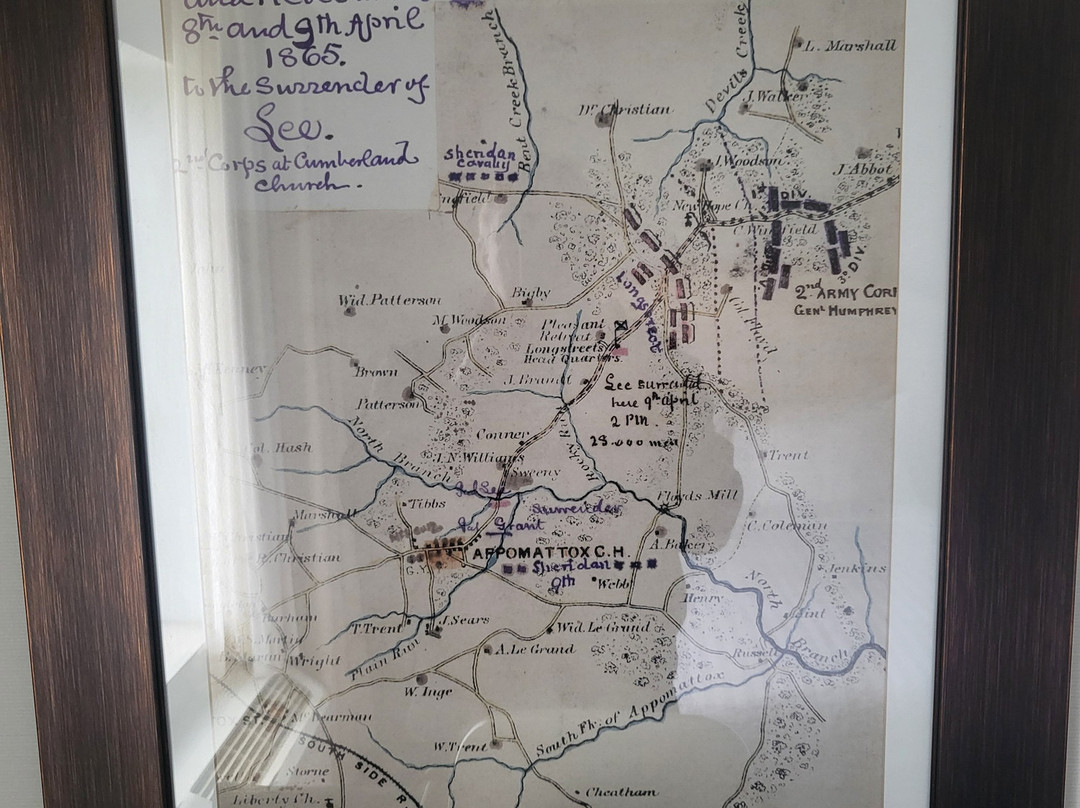 8th and 9th April
1865.
to the Surrender of
Lee.
2nd Corps at Cumberland
church.
Bent Creek Branch
Devils Creek
L. Marshall
J. Walker
Dr Christian
Sheridan
Cavalry
J. Woodson
J. Abbot
New Hope Ch.
1st DIV.
3d DIV.
2nd ARMY COR
GENL HUMPHREY
Longstreet
Bigby
Wid. Patterson
M. Woodson
Pleasant
Retreat
Longstreets
Head Quarters
Brown
J. Brandt
Patterson
Lee surrend
here 9th April
2 PM.
28.000 men
Conner
Rocky Run
North
Branch
J. N. Williams
Sweeny
Trent
Hash
Floyds Mill
Tibbs
Genl Lee
Surrender
Grant
Marshall
C. Coleman
Christian
APPOMATTOX C.H.
Sheridan
9th
A. Baker
Jenkins
Webb
G.Y.
Henry
North
Branch
T. Trent
J. Sears
Wid. Le Grand
Plain Run
A. Le Grand
Wright
Russell
W. Inge
South Fk. of Appomattox
SOUTH SIDE R
W. Trent
Storne
Liberty Ch.
Cheatham